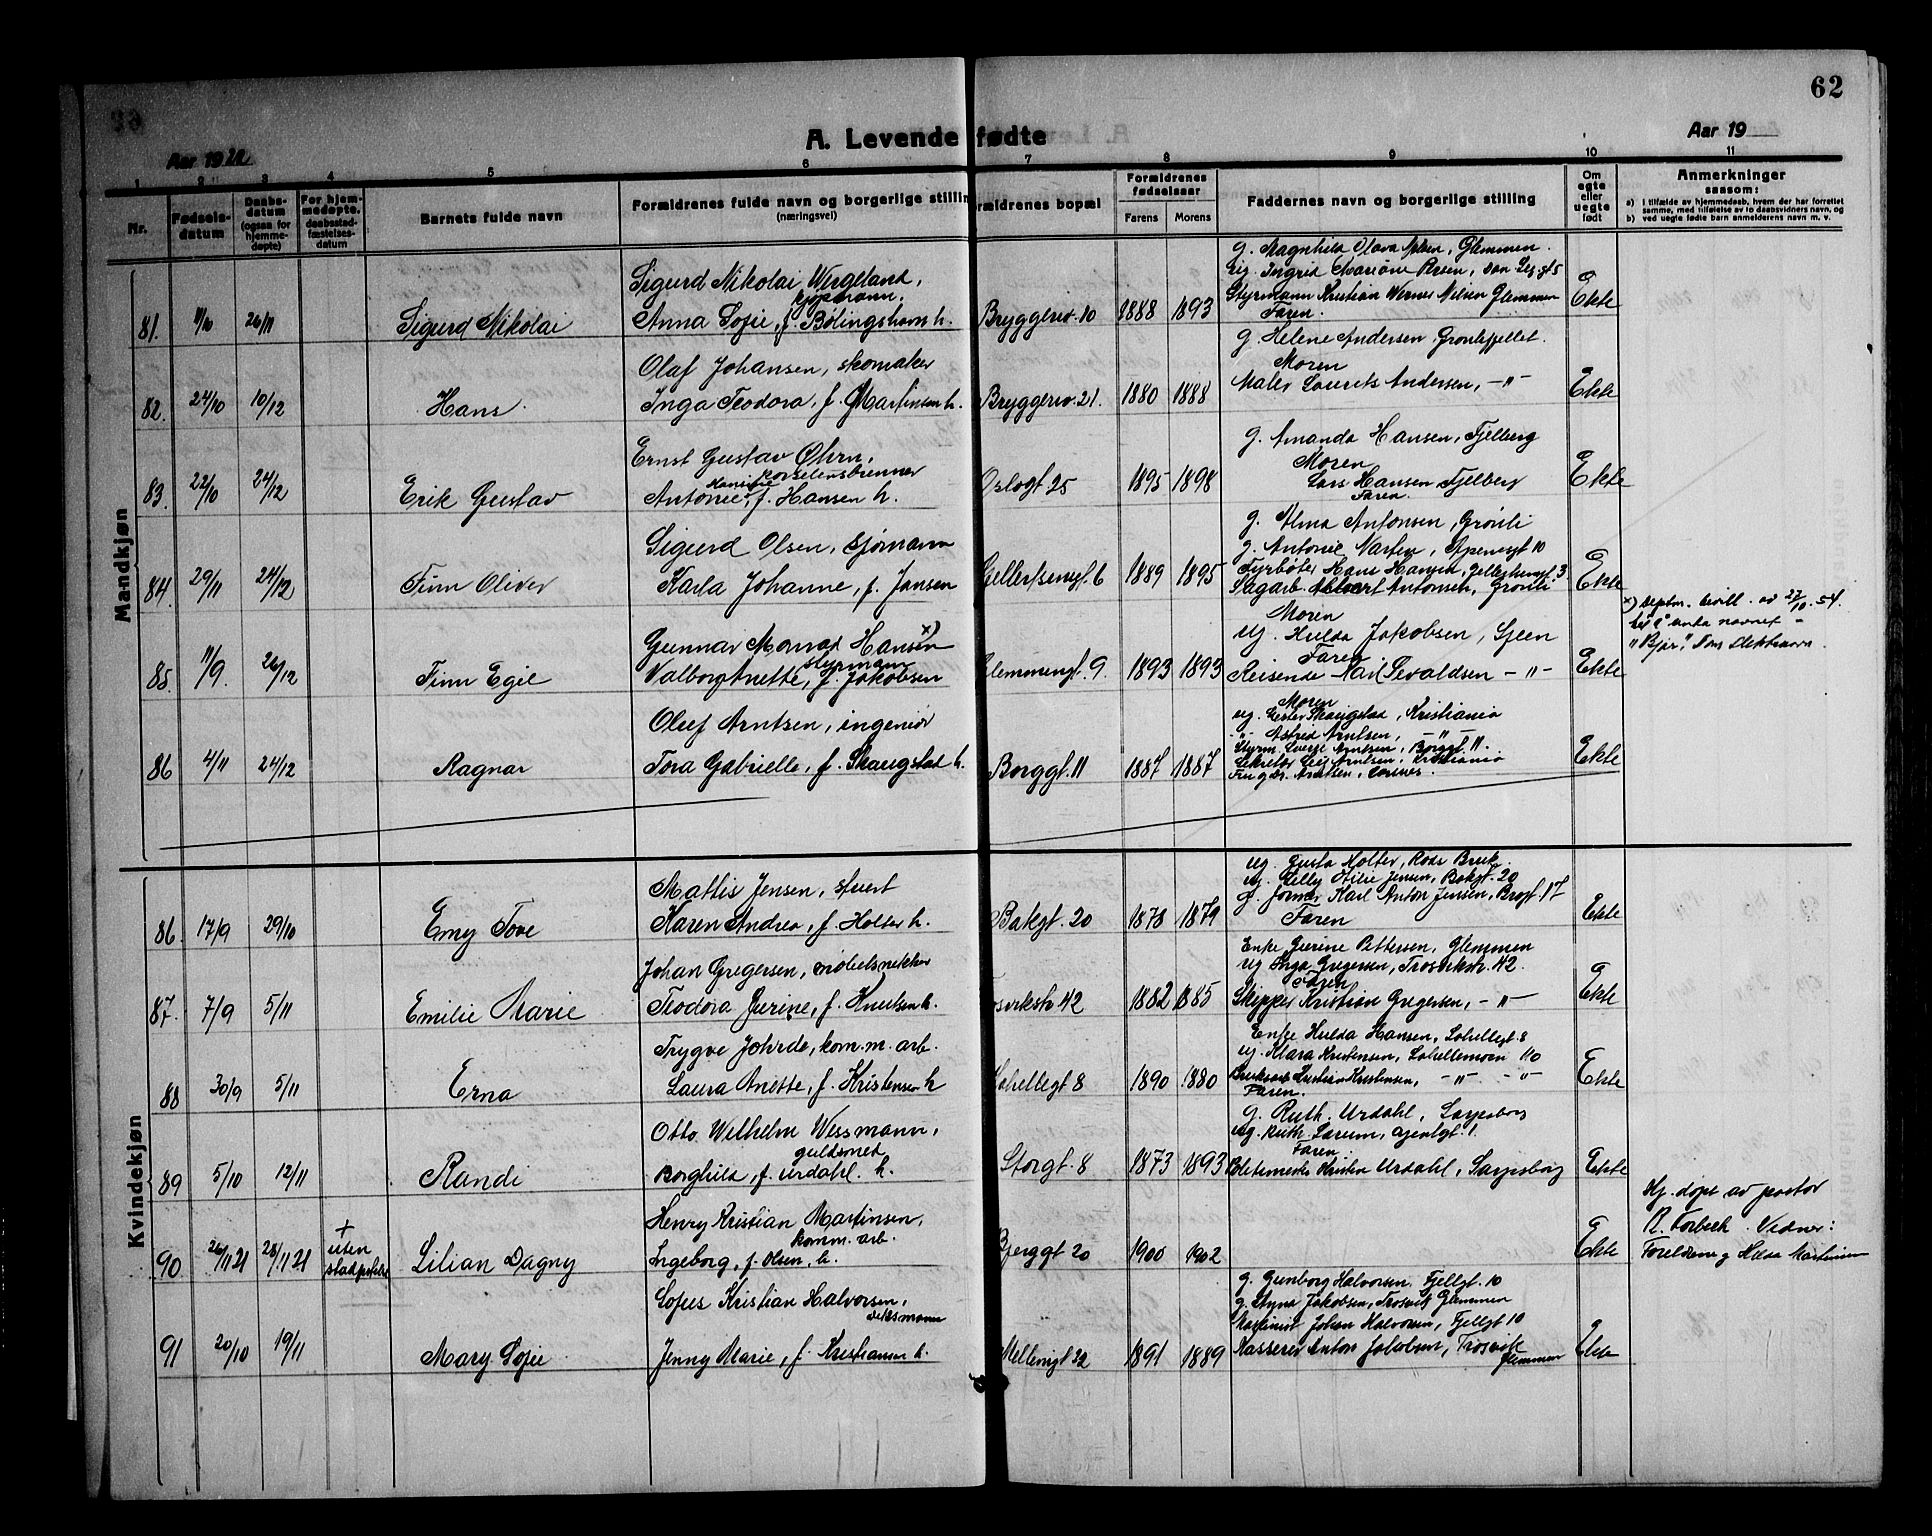 62
A. Levende fødte
Aar 19
Aar 1922
1 2 3 4 5 6 7 8 9 10 11
Nr.
Fødsels-
datum
Daabs-
datum
(ogsaa for
hjemme-
døpte)
For hjem-
medøpte.
daabsstad-
fæstelses-
datum
Barnets fulde navn
Forældrenes fulde navn og borgerlige stilling
(næringsvei)
Forældrenes bopæl
Forældrenes
fødselsaar
Farens Morens
Faddernes navn og borgerlige stilling
Om
egte
eller
uegte
født
Anmerkninger
saasom:
a) i tilfælde av hjemmedaab, hvem der har forrettet
samme, med tilføielse av to daabsvidners navn, og
b) ved uegte fødte barn anmelderens navn m. v.
Mandkjøn
81. 11/10 26/11 Sigurd Nikolai
Sigurd Nikolai Wergeland,
kjøpmann,
Anna Sofie, f. Bølingshavn h.
Bryggeriv. 10 1888 1893
g. Magnhild Olava Nilsen, Glemmen.
ug. Ingrid
Styrmann Kristian Werner Nilsen Glemmen
Faren.
Ekte
82. 24/10 10/12 Hans
Olaf Johansen, skomaker
Inga Teodora, f. Martinsen h.
Bryggeriv. 21. 1880 1888
g. Helene Andersen
Moren
Maler Laurits Andersen, -"-
Ekte
83 22/10 24/12 Erik Gustav
Ernst Gustav Øhrn,
porselensbrenner
Antonie, f. Hansen h.
Oslogt 25 1895 1898
g. Amanda Hansen, Fjelberg
Moren
Lars Hansen Fjelberg
Faren.
Ekte
84. 29/11 24/12 Finn Oliver
Sigurd Olsen, sjømann
Karla Johanne, f. Jansen
Gellertsengt. 6 1889 1895
g. Alma Antonsen, Grønli
g. Antonie
Fyrbøter Hans Hansen, Gellertsengt. 3
Sagarb. Antonsen, Grønli
Ekte
85. 11/9. 26/12 Finn Egil
Gunnar Monrad Hansen x)
styrmann
Valborg Anette, f. Jakobsen
Glemmengt. 9. 1893 1893
Moren
ug. Hulda Jakobsen,
Faren
Reisende Karl Sevaldsen -"-
Ekte
x) Deptm. bevill. av 27/10. 54.
til å anta navnet -
86 4/11 24/12 Ragnar
Oluf Arntsen, ingeniør
Tora Gabrielle, f. Skaugstad h.
Borggt. 11 1887 1887
Moren
ug. Skaugstad, Kristiania
-"- Astrid Arntsen, -"-
Styrm. Sverre Arntsen, Borggt. 11.
Sekretær Leif Arntsen, Kristiania
Arntsen,
Ekte
Kvindekjøn
86. 17/9 29/10 Emy Tove
Mattis Jensen, stuert
Karen Andrea, f. Holter h.
Bakgt. 20 1878 1879
ug. Gusta Holter, Rods Bruk.
ug. Otilie Jensen, Bakgt. 20
g. former Karl Anton Jensen, Brogt 17
Faren
Ekte
87. 7/9 5/11 Emilie Marie
Johan Gregersen, møbelsnekker
Teodora Gurine, f. Knutsen h.
Trosvikstr 42 1882 1885
Enke Gurine Pettersen, Glemmen
ug Inga Gregersen, Trosvikstr. 42.
Faren
Skipper Kristian Gregersen, -"-
Ekte
88 30/9 5/11 Erna
Trygve Johrde, kom. m. arb.
Laura Anette, f. Kristensen h
Lahellegt 8 1890 1880
Enke Hulda Hansen, Lahellegt. 8
ug. Klara Kristensen, Lahellemoen 110
Bruksarb Kristian Kristensen, -"- -"-
Faren.
Ekte
89 5/10 12/11 Randi
Otto Wilhelm Wessmann,
guldsmed
Borghild, f. Urdahl. h.
Storgt. 8 1873 1893
g. Ruth. Urdahl, Sarpsborg
ug. Ruth Agentgt. 1.
Faren.
Kristian Urdahl, Sarpsborg
Ekte
90 26/11 21 28/11 21
+
uten
stadfestelse
Lilian Dagny
Henry Kristian Martinsen,
komm. arb.
Ingeborg, f. Olsen, h.
Bjerggt 20 1900 1902
Ekte
Hj. døpt av pastor
R. Torbech. Vidner:
Foreldrene og Martinsen
91 20/10 19/11 Mary Sofie
Sofus Kristian Halvorsen,
dekksmann
Jenny Marie, f. Kristiansen h.
Mellemgt 32 1891 1889
g. Gunborg Halvorsen. Fjellgt. 10
g. Jakobsen, Trosvik Glemmen
Maskinist Johan Halvorsen, Fjellgt 10
Kasserer Anton Jakobsen, Trosvik
Glemmen
Ekte